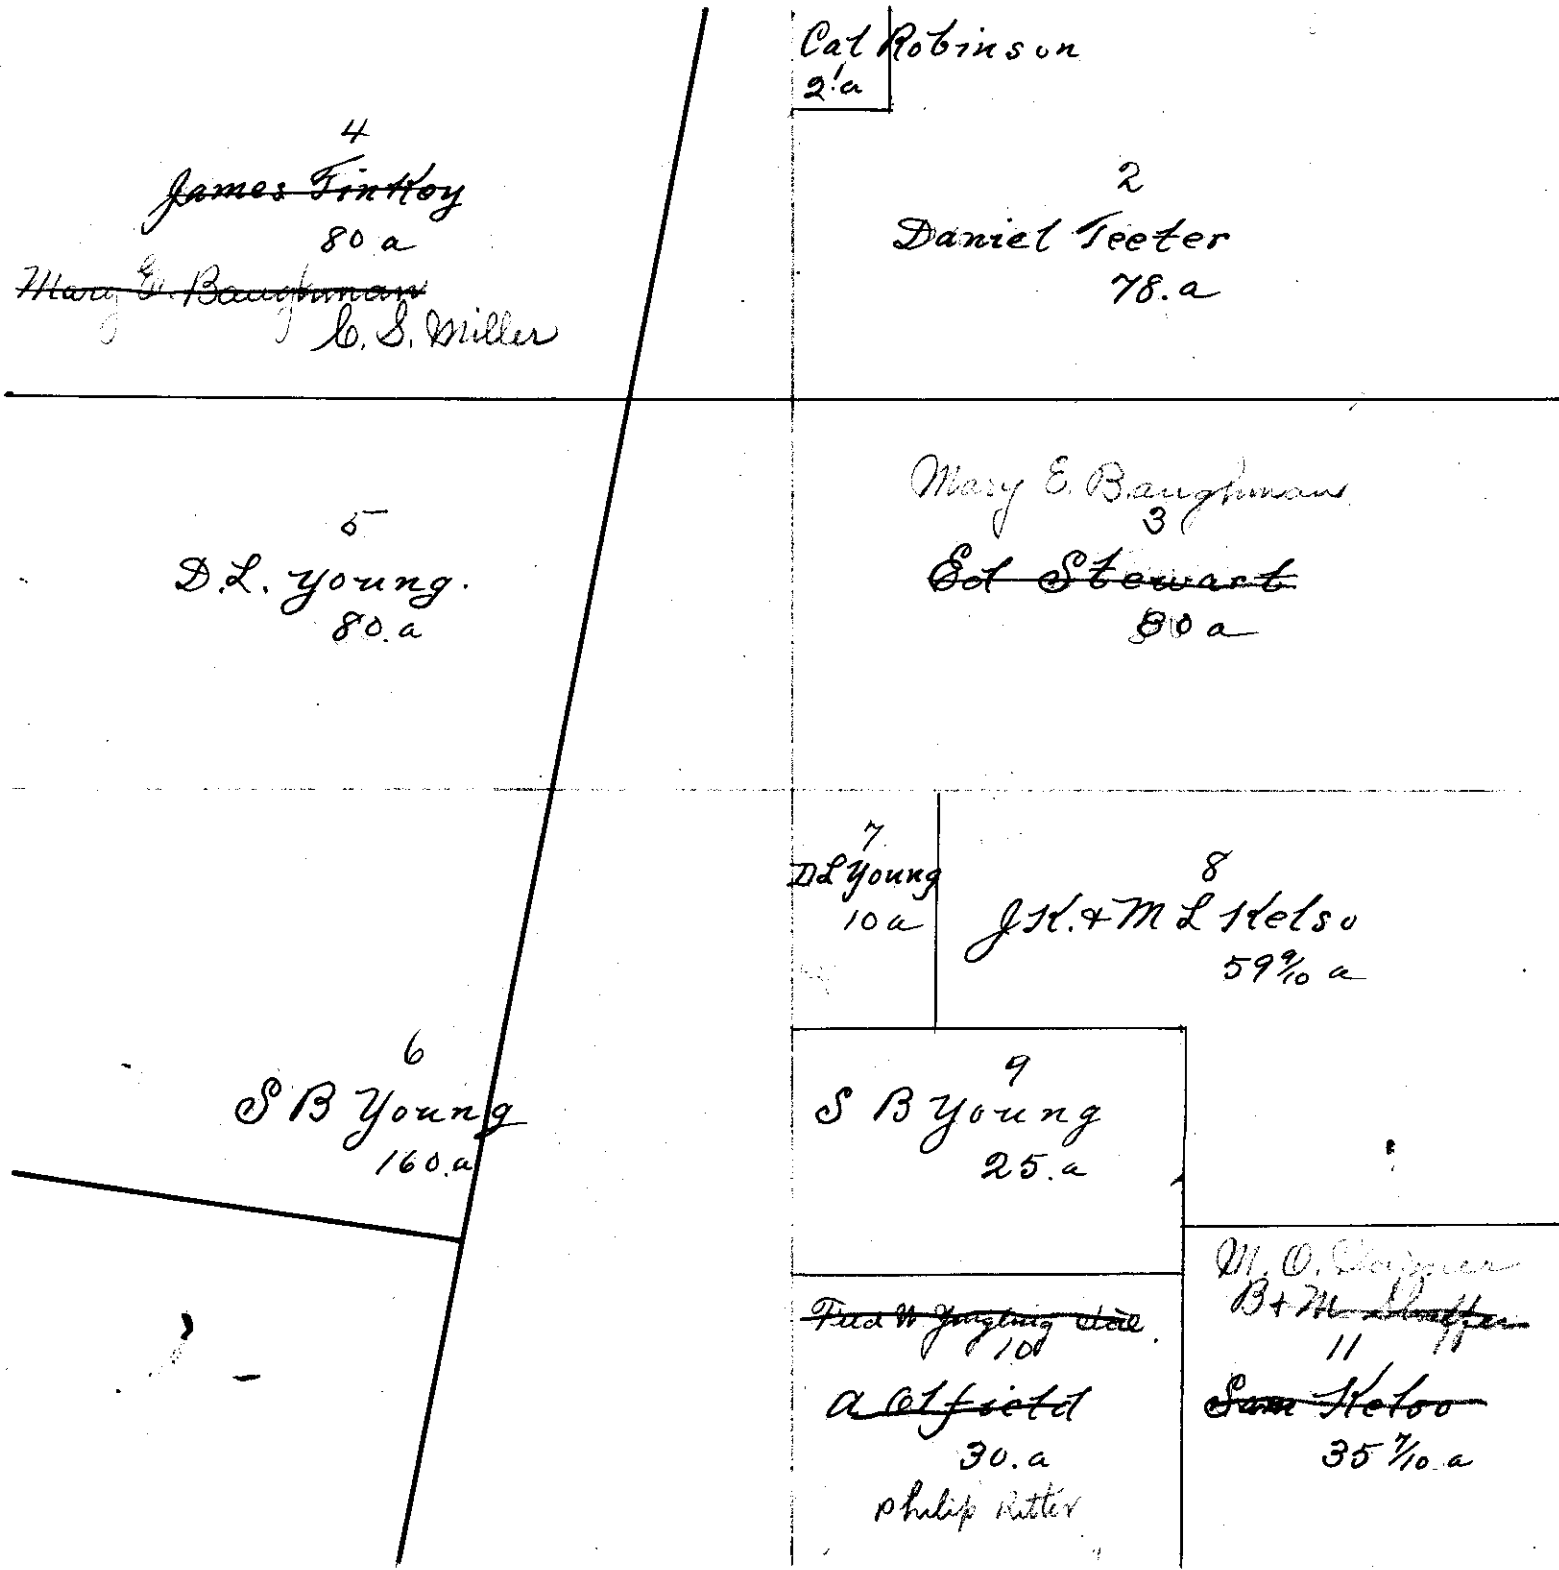 Cal Robinson
1
2.a
4
James Finkoy
80 a
Mary E. Baughman
C. S. Miller
2
Daniel Teeter
78.a
5
D.L. Young.
80.a
Mary E. Baughman
3
Ed Stewart
80 a
7
DL Young
10 a
8
J K. + M L Kelso
59 9/10 a
6
S B Young
160.a
9
S B Young
25.a
Fred W Yingling
10
A Olfield
30.a
Philip Ritter
M. O.
B + M Shaffer
11
Sam Kelso
35 7/10 a